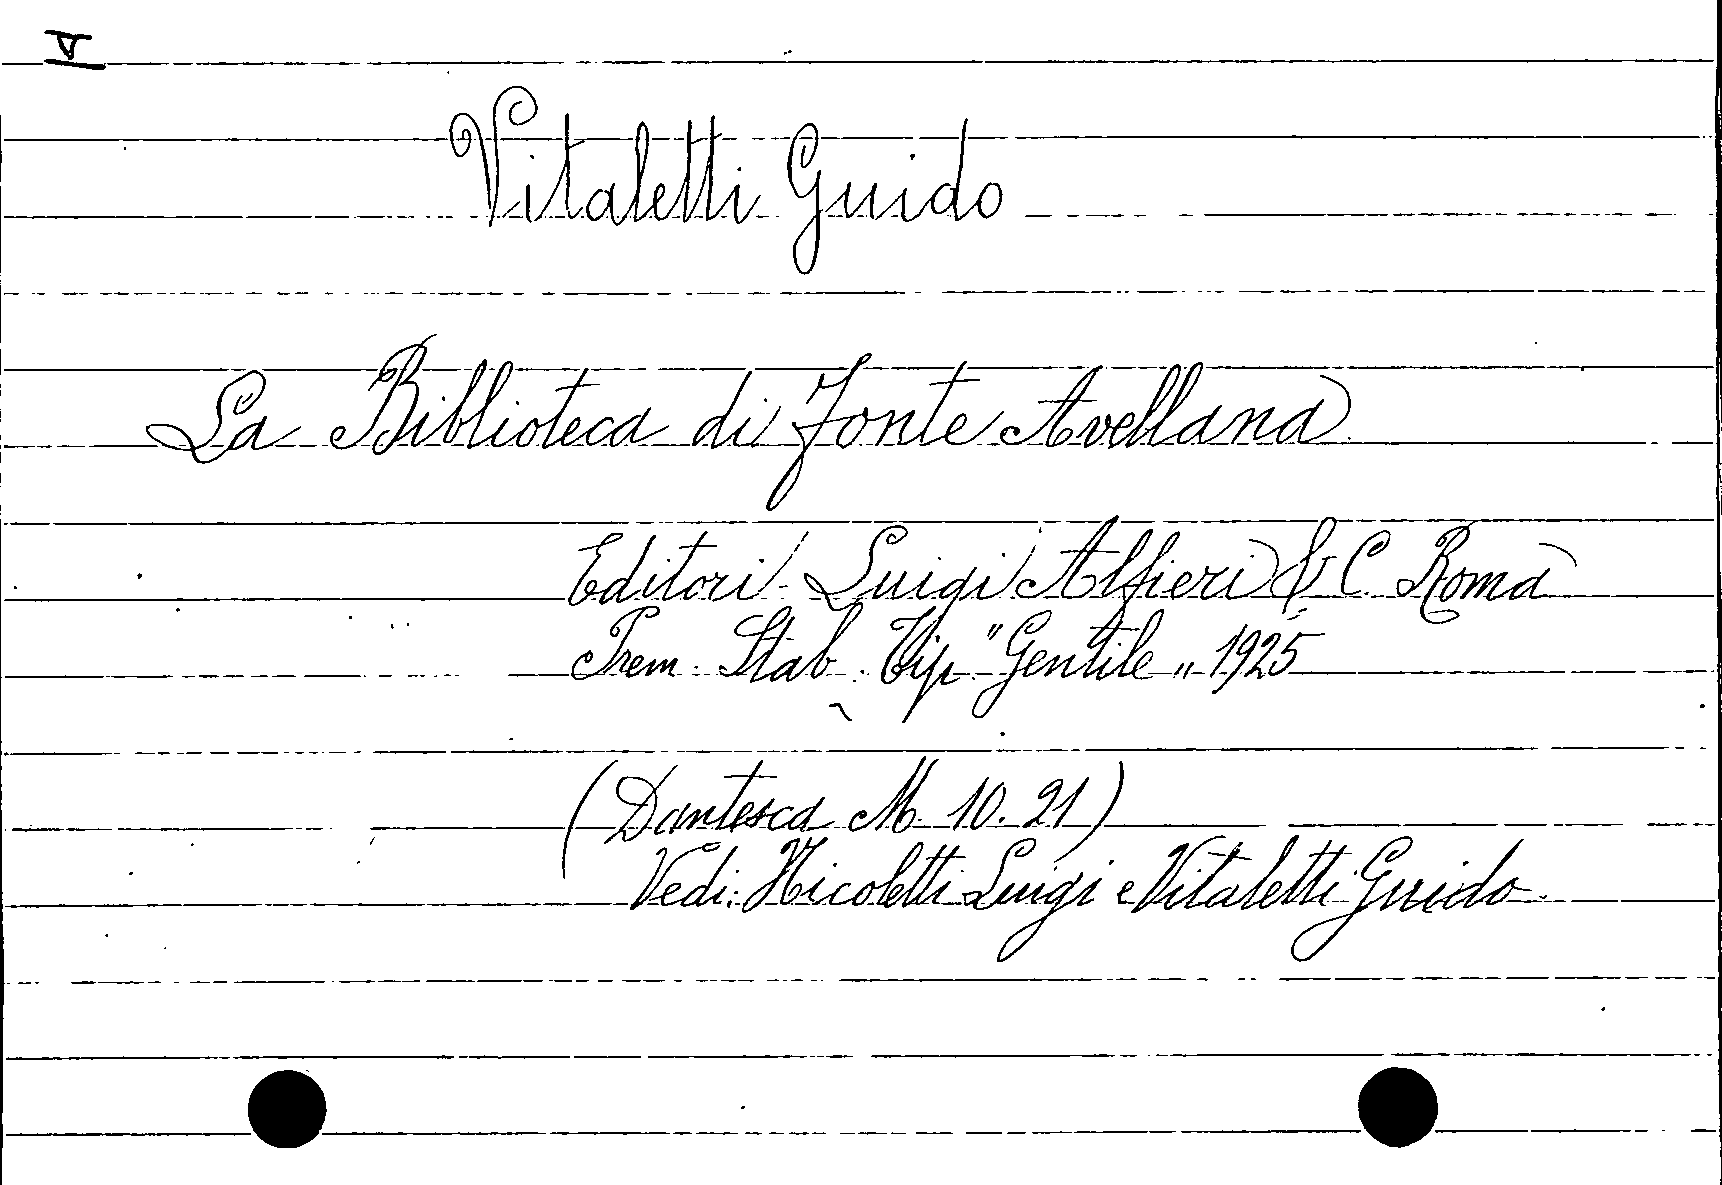 V
Vitaletti Guido
La Biblioteca di Fonte Avellana
Editori Luigi Alfieri & C. Roma
Prem. Stab. Tip. "Gentile„ 1925
(Dantesca M. 10. 21)
Vedi: Nicoletti Luigi e Vitaletti Guido.